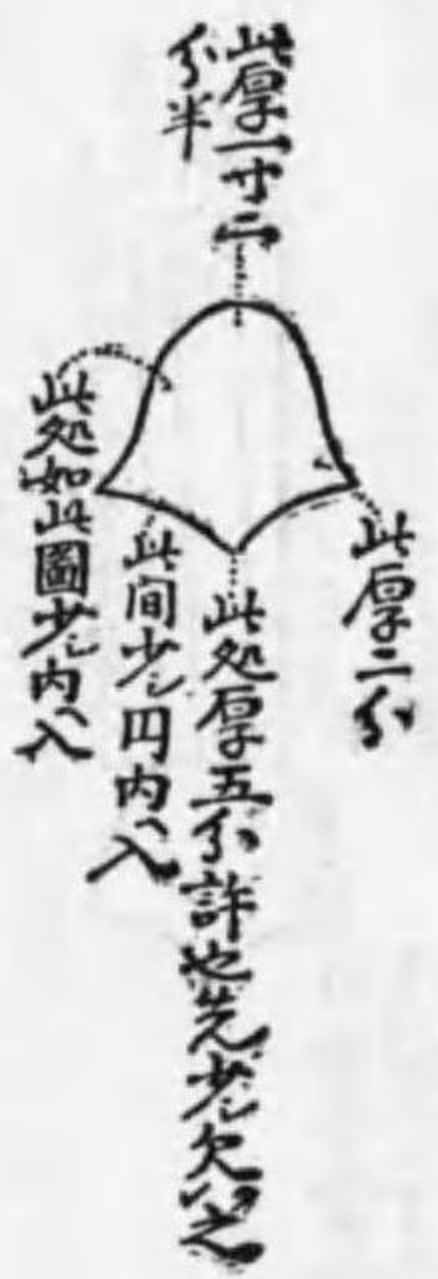 此厚一寸二
分半
此厚二分
此処厚五分許也先少シ欠之
此间少シ円内ヘ入
此処如此圖少シ内ヘ入